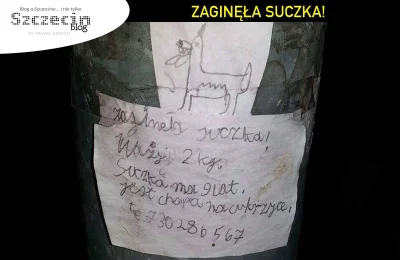 Blog o Szczecinie... i nie tylko
Szczecin
blog
ZAGINĘŁA SUCZKA!
zaginęła suczka!
Waży 2 kg.
Suczka ma 9 lat.
jest chora na cukrzyce,
730286567